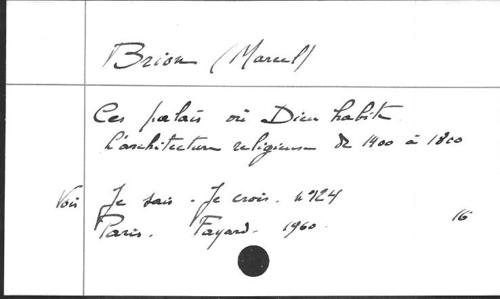 Brion (Marcel)
Ces palais où Dieu habite
L'architecture religieuse de 1400 à 1800
Voir Je sais. Je crois. n°124
Paris. Fayard. 1960. 16